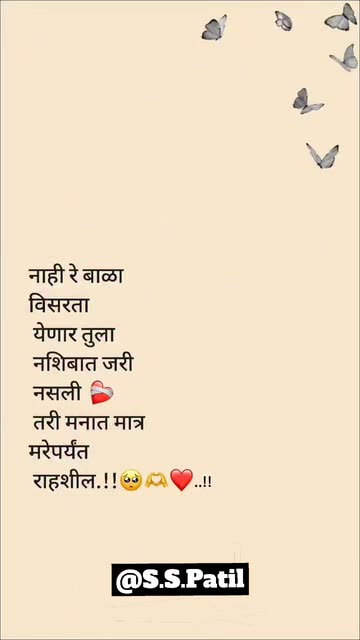 नाही रे बाळा
विसरता
येणार तुला
नशिबात जरी
नसली ❤️‍🩹
तरी मनात मात्र
मरेपर्यंत
राहशील.!!🥺🫶❤️..!!
@S.S.Patil